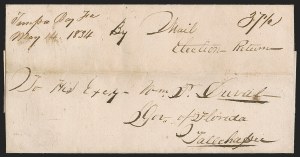 Tampa Bay Fla
May 14. 1834 By Mail 37½
Election Return
To His Excy. Wm. P. Duval
Gov. of Florida
Talehassee